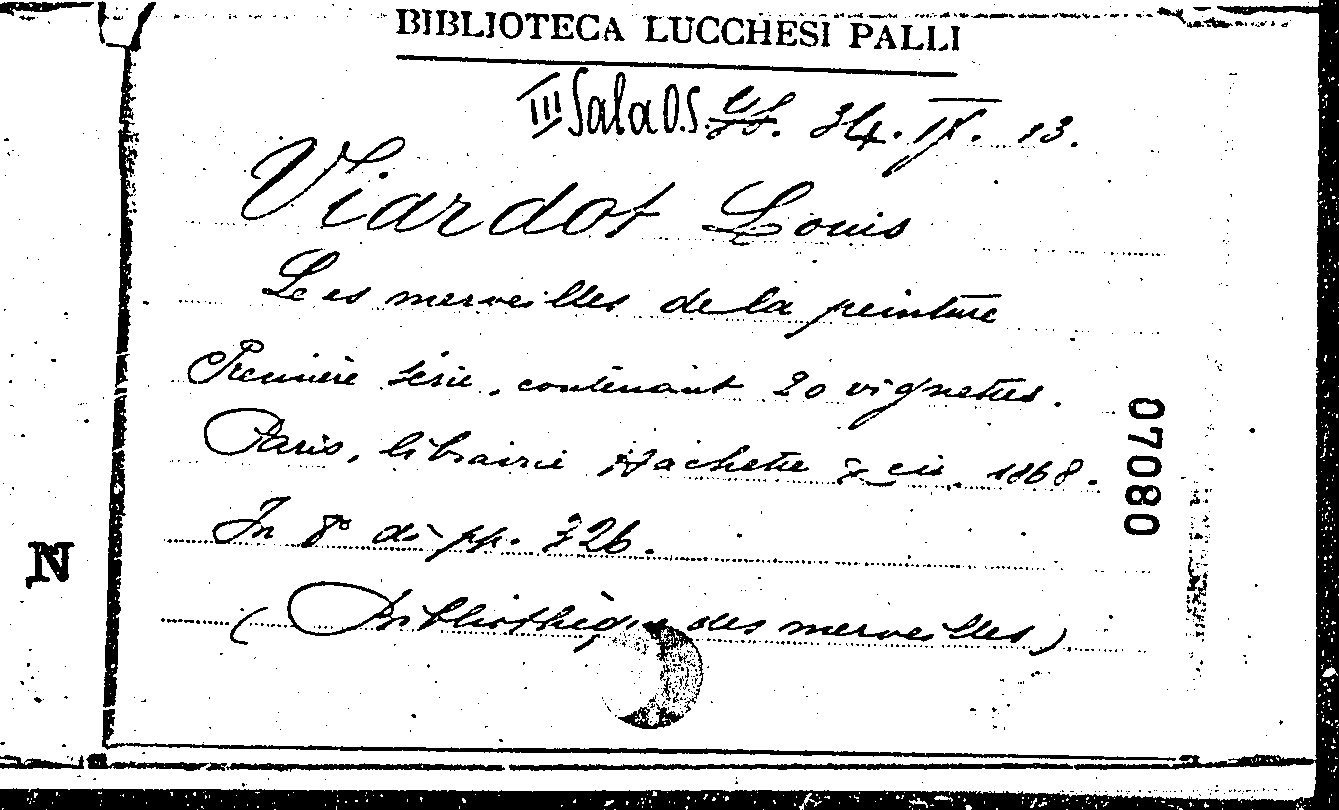 BIBLIOTECA LUCCHESI PALLI
III Sala O.S. 34. IX. 13.
Viardot Louis
Les merveilles de la peinture
Première série, contenant 20 vignettes.
Paris, librairie Hachette & cie. 1868.
In 8° di pp. 326.
(Bibliothèque des merveilles)
07080
N